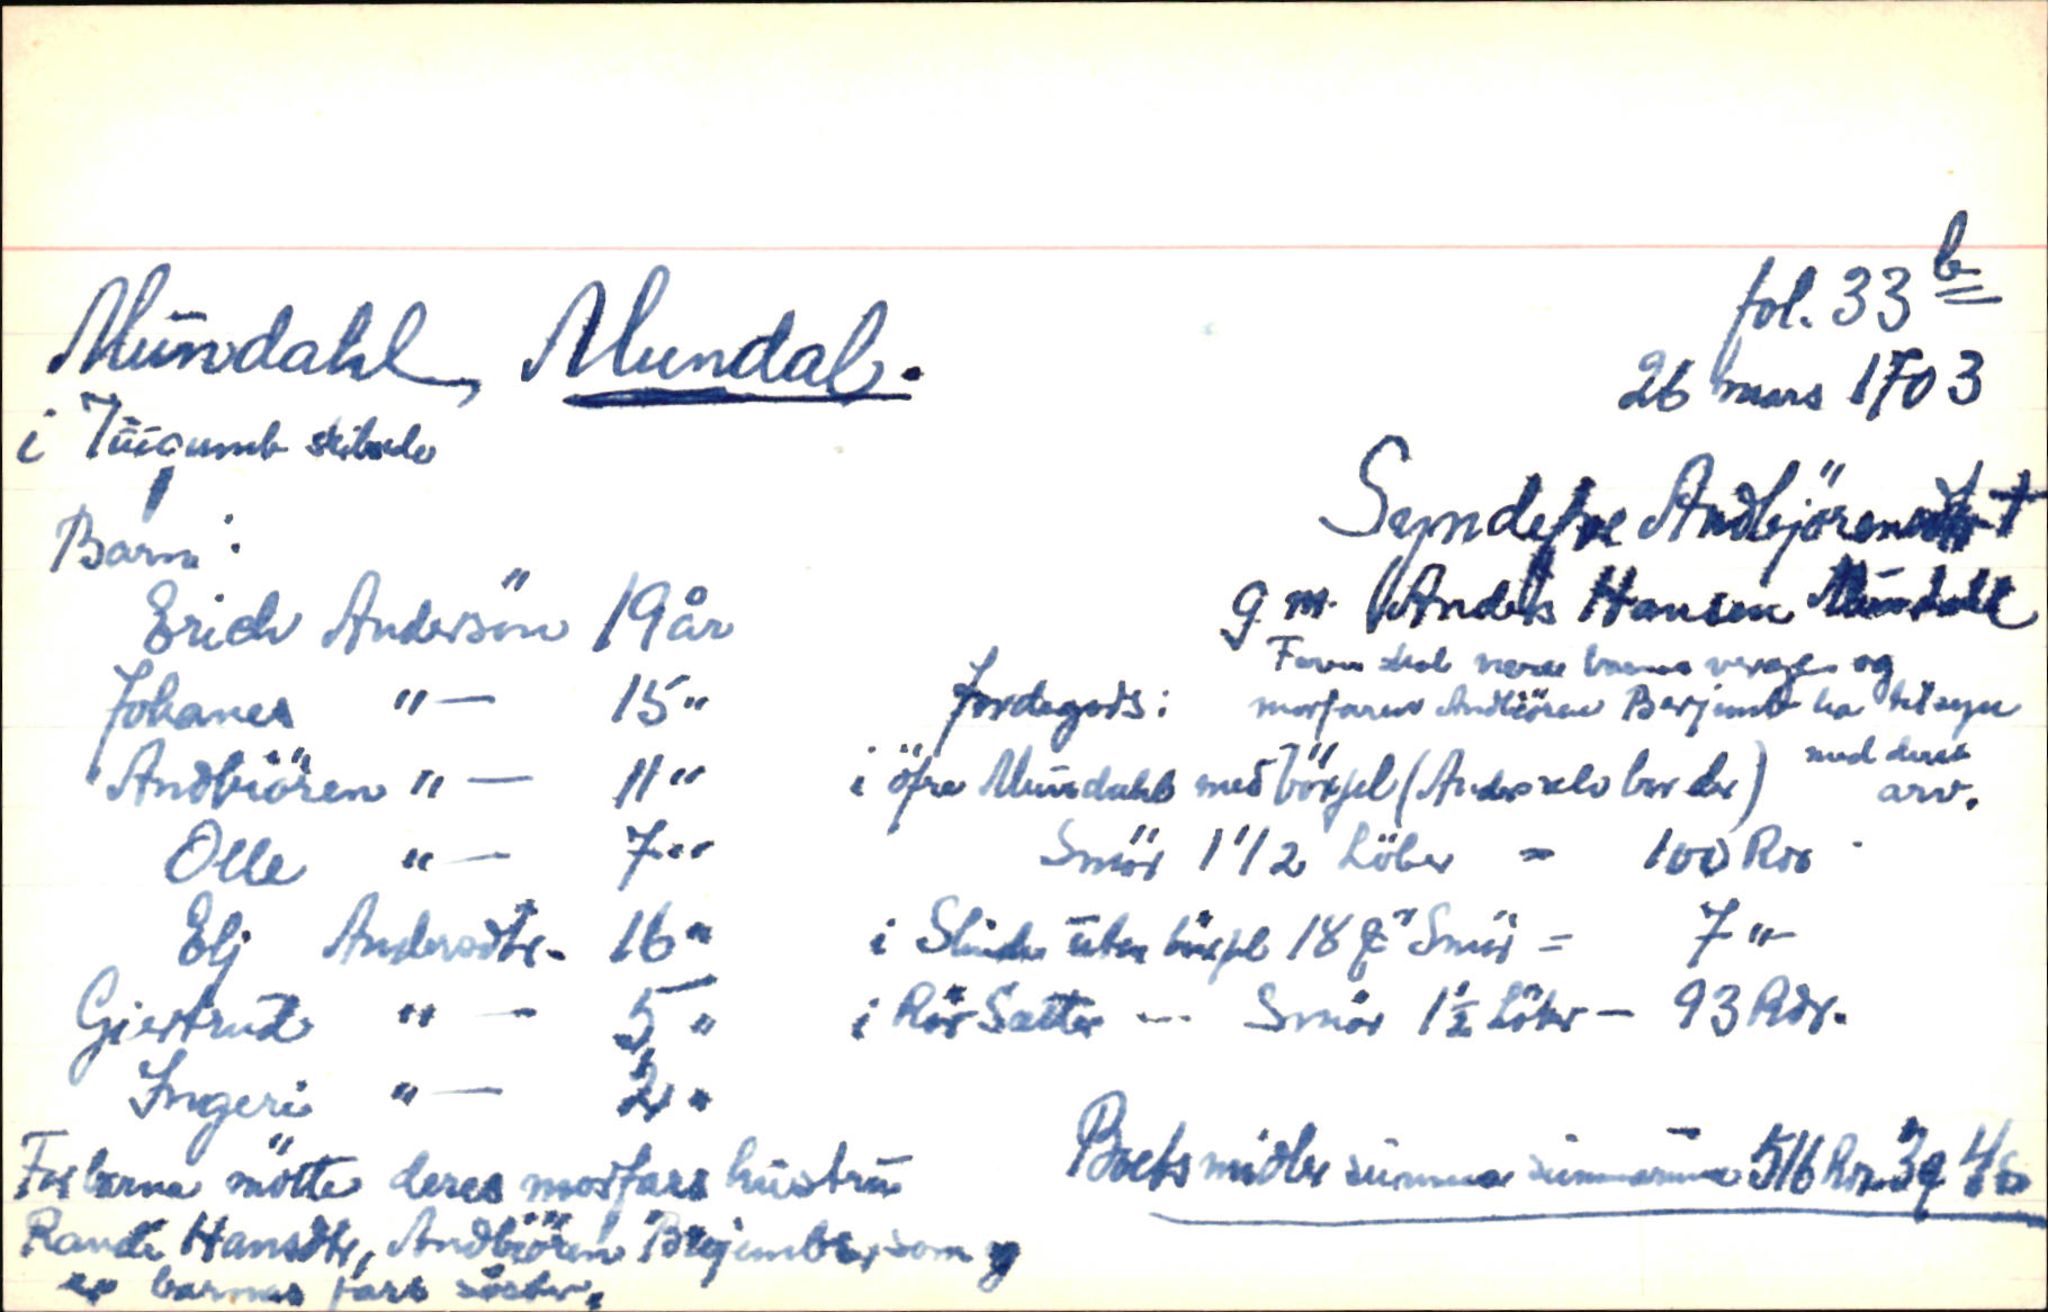 fol. 33 b
Mündahl, Mundal.
26 mars 1703
i Jüigumb skibrede
Syndefve Andbjörensdtr †
Barn:
g. m. Anders Hansen Mündahl
Erich Andersön 19 år
Faren skal være barnas verge og
Johanes "— 15 "
Jordegods: morfaren Andbiören Berjumb ha tilsyn
med deres
Andbiören "— 11 "
i öfre Mündahl med böxsel (Anders selv bor der) arv.
Olle "— 7 "
Smör 1 1/2 Löber = 100 Rdr
Elj Andersdtr. 16 "
i Slinde uten böxsel 18 Smör = 7 "—
Giertrud "— 5 "
i Rör Sætter --- Smör 1 1/2 Löber — 93 Rdr.
Ingeri "— 2 "
Boets midler summa summarum 516 Rdr. 3 q 4 s
For barna mötte deres morfars hüstrü
Rande Hansdtr, Andbiören Bergumb som og
er barnas fars söster.